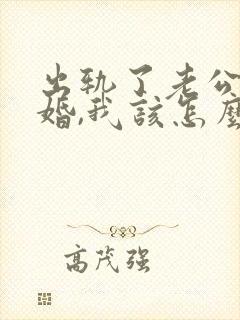 出轨了老公
婚,我该怎麽
高茂强